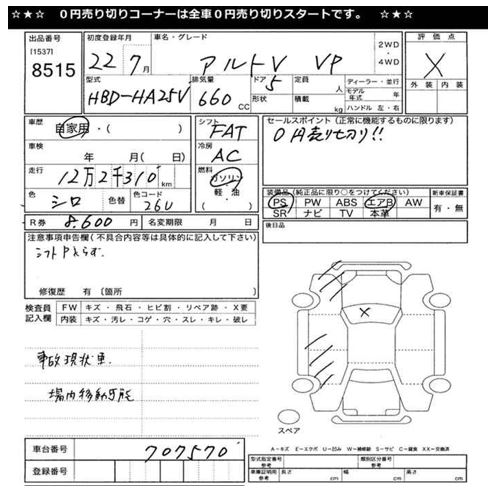 ☆★☆ 0円売り切りコーナーは全車0円売り切りスタートです。 ☆★☆
出品番号 初度登録年月 車名・グレード 評価点
[1537] 22 年 7月 アルトV VP 2WD・4WD X
8515 型式 排気量 ドア 定員 ディーラー・並行 外装 内装
HBD-HA25V 660 CC 5 形状 積載 人 kg モデル年式 年 ハンドル 左・右
車歴 自家用・( ) シフト FAT セールスポイント(正常に機能するものに限ります)
車検 年 月(日) 冷房 AC 0円売り切り!!
走行 12万2千310km 燃料 ガソリン 軽油
色 シロ 色替 色コード 26U ( ) 装備品(純正品に限り○をつけてください) 新車保証書
PS PW ABS エアB AW 有・無
SR ナビ TV 本革
R券 8,600円 名変期限 月 日 後日品
注意事項申告欄(不具合内容等は具体的に記入して下さい)
シフトP入らず
修復歴 有〔箇所 〕
検査員記入欄 FW キズ・飛石・ヒビ割・リペア跡・X要
内装 キズ・汚レ・コゲ・穴・スレ・キレ・破レ
X
事故現状車
場内移動可能
スペア
車台番号 707570
A-キズ E-エクボ U-凹み W-補修跡 S-サビ C-腐食 XX-交換済
登録番号 型式指定番号 参考 類別区分番号 参考
車庫証明用 参考 長さ cm 幅 cm 高さ cm